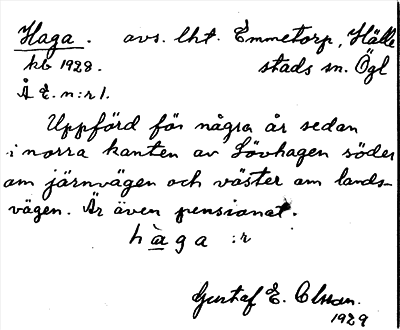 Haga. avs. lht. Emmetorp, Hälle
kb 1928. stads sn. Ögl
Å E. n:r 1.
Uppförd för några år sedan
i norra kanten av Lövhagen söder
om järnvägen och väster om lands-
vägen. Är även pensionat.
hàga :r
Gustaf E. Olsson.
1929